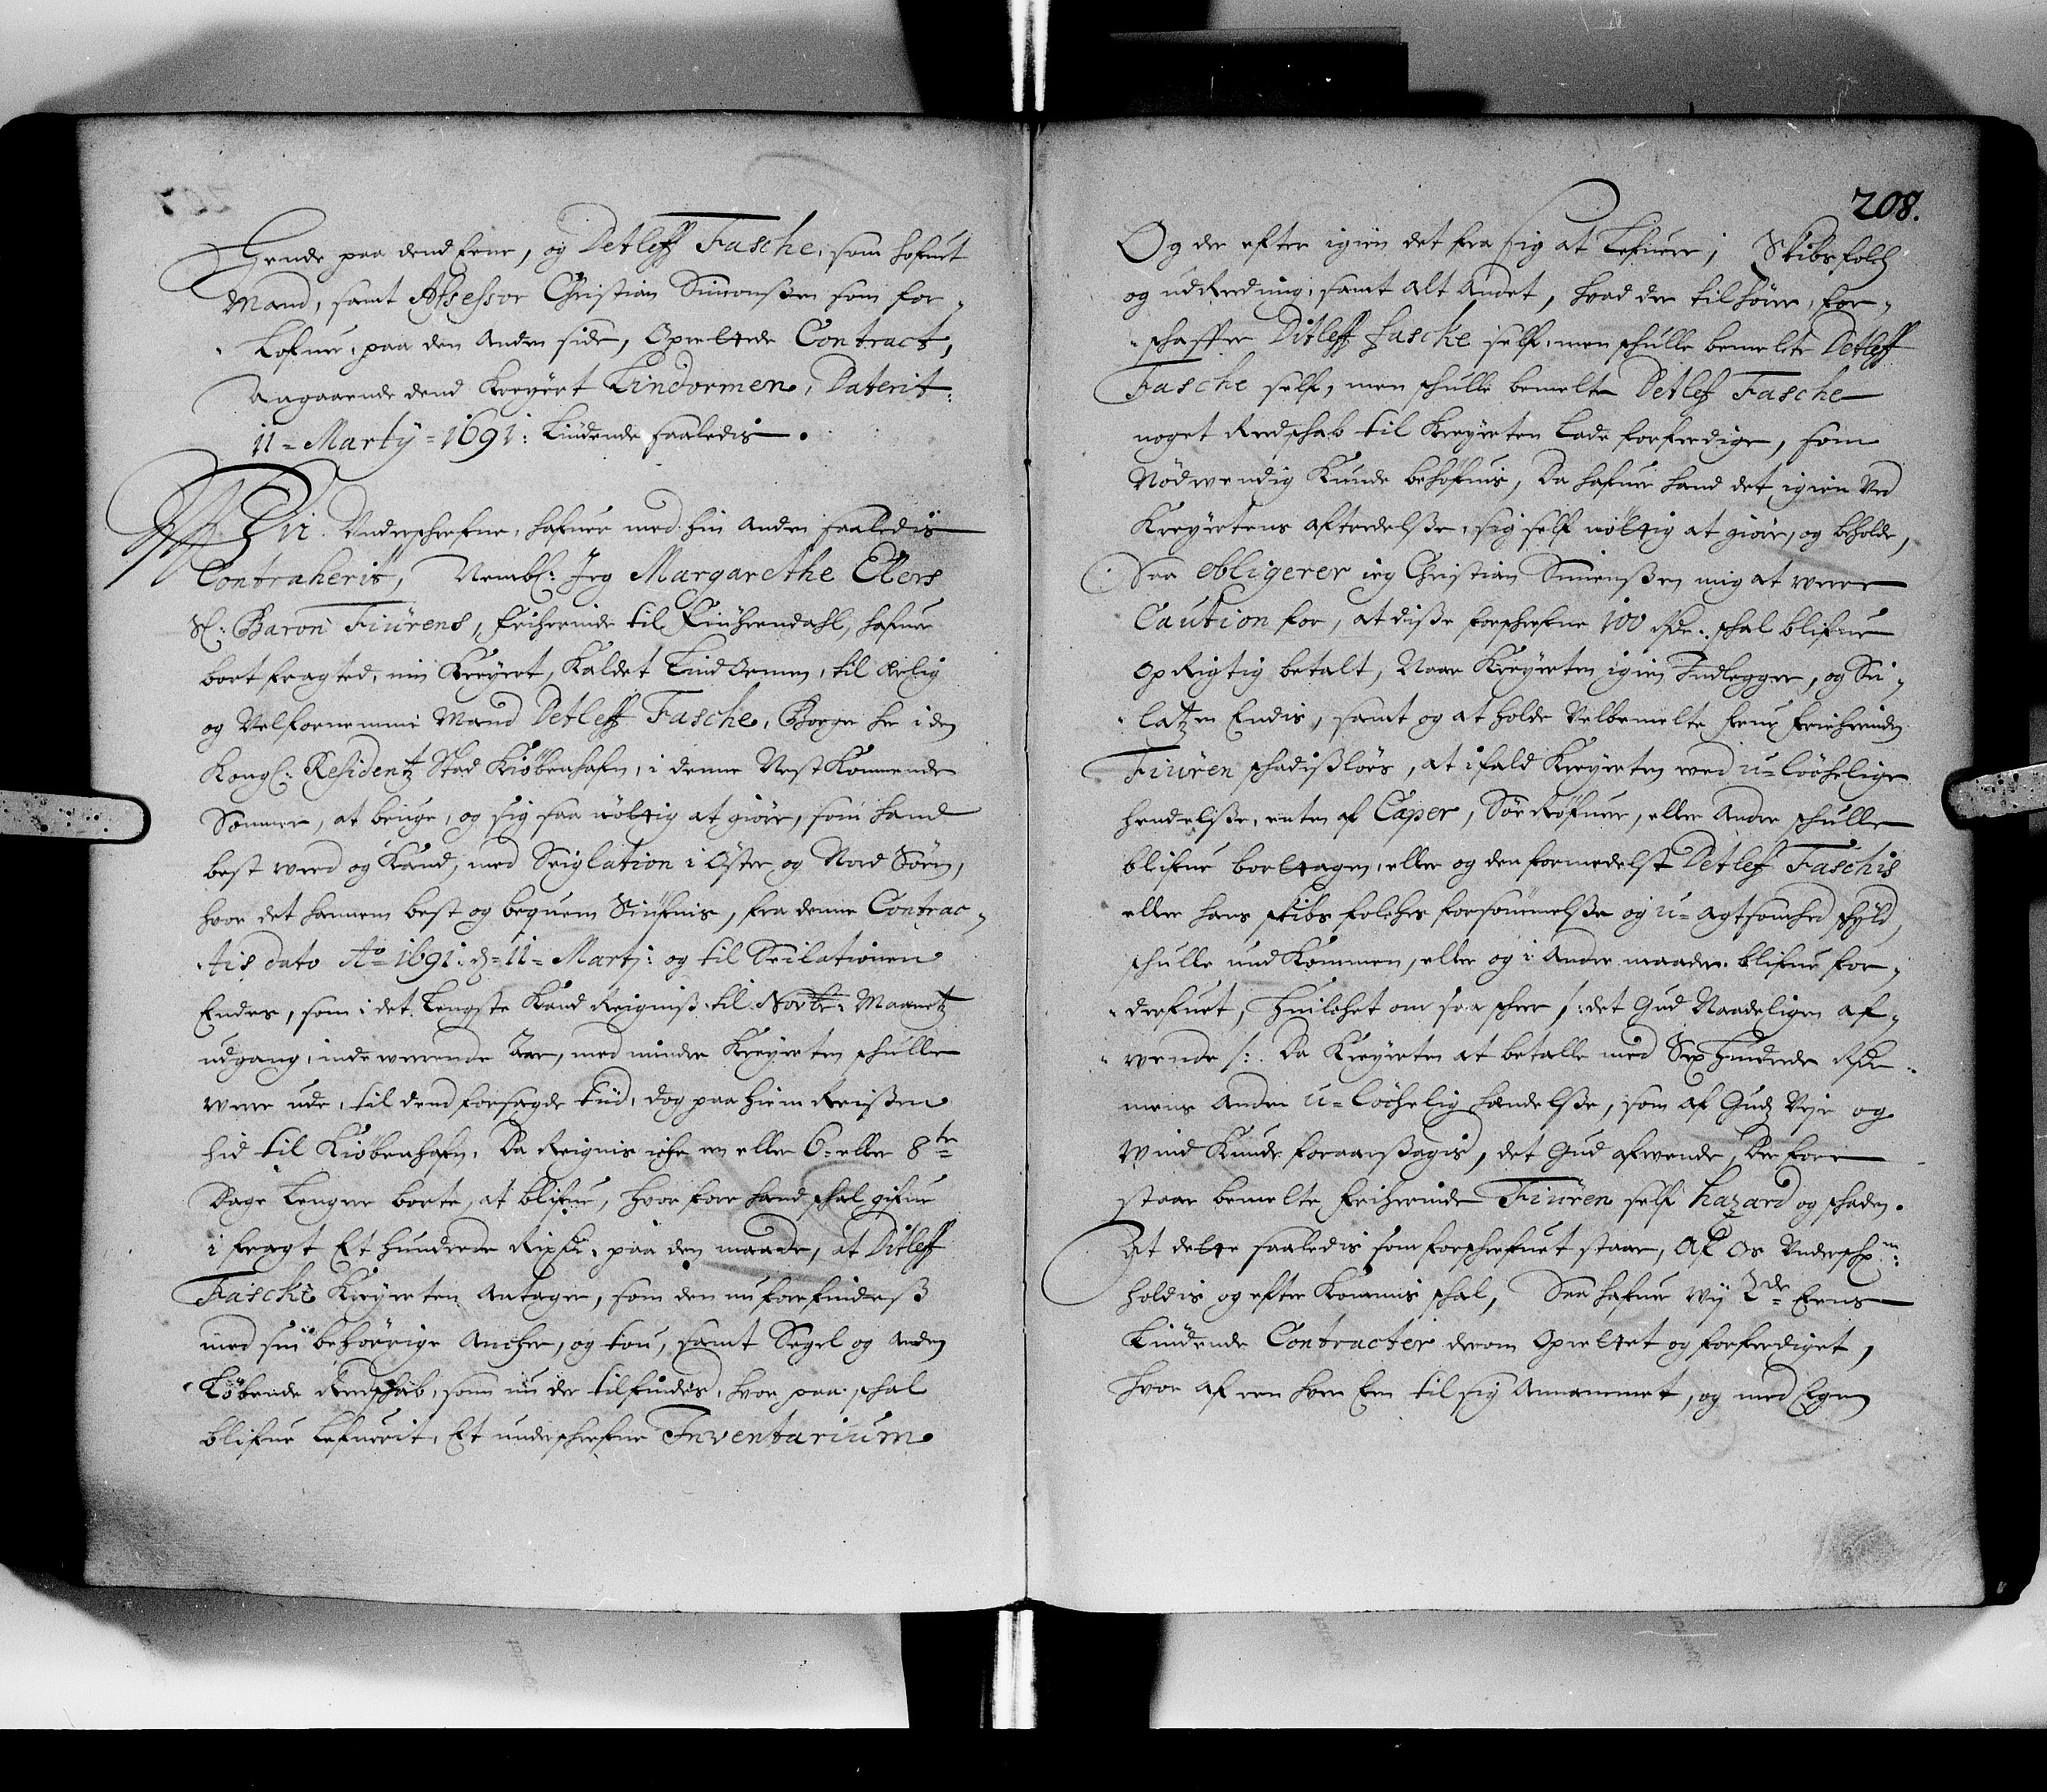 Hende paa dend Eene, og Detleff Fasche, som hofuet
Mand, samt Assessor Christian Simonsen som for„
„Lofuer, paa den Anden side, Oprettede Contract,
Angaaende dend Kreyert Lindormen, Daterit:
11 = Martÿ = 1691: Liudende saaledis.
Vii Underschrefne, hafuer med hin anden saaledis
Contraherit, Nembl: Jeg Margarethe Elers
Sl: Baron Fiurens, Friherinde til Fiuhrendahl, hafuer
bort fragted, min Kreyert, Kaldet LindOrmen, til Ærlig
og Velfornemme Mand Detleff Fasche, Borger her i den
Kongl: Residentz Stad Kiøbenhafn, i denne Nest Kommende
Sommer, at bruge, og sig saa nøttig at giøre, som hand
best veed og Kand, med Seiglation i Øster og Nord Søen,
hvor det hannem best og bequem Siunis, fra denne Contrac„
„tis dato Ao 1691: d= 11= Marti: og til Seilationen
Endes, som i det Lengste Kand Reigniss til Novbr: Maanetz
udgang, indeverende Aar, med mindre Kreyerten schulle
vere ude, til dend forsagde tiid, dog paa Hiem Reissen
hid til Kiøbenhafn, Da Reignis iche en eller 6= eller 8te
Dage Lenger borte, at blifue, hvor fore hand schal gifue
i fragt Et Hundrede Rixdr. paa den maade, at Ditleff
Fasche Kreyerten Antager, som den nu forefindess
med sin behørige Ancher, og tou, samt Segel og anden
Løbende Redschab, som nu der tilfindes, hvor paa schal
blifue Lefuerit, Et underschrefne Inventarium
208.
Og der efter igien det fra sig at Lefuere, Skibsfolch
og udReedning, samt alt Andet, hvad der til hører, for„
„schaffer Ditleff Fasche self, men schulle bemelte Detleff
Fasche self, men schulle bemelte Detleff Fasche
noget Redschab til Kreyerten Lade forferdige, som
Nødvendig Kunde behøfuis, Da hafuer hand det igien Ved
Kreyertens aftredelsse, sig self nøttig at giøre, og beholde,
Saa obligerer ieg Christian Simonssen mig at were
Caution for, at disse forschrefne 100 Rdr: schal blifue
OpRigtig betalt, Naar Kreyerten igien Indlegger, og Sei„
„latzen Endis, samt og at holde Velbemelte Frue Friherinde
Fiuren schadissløes, at ifald Kreyerten ved u=lyckelige
hendelsse, enten af Caper, Søe Røfuer, eller Andre schulle
blifue borttagen, eller og den formedelst Detleff Faschis
eller hans skibs folches forsømmelsse og u=Agtsomhed schyld,
schulle umd Kommen, eller og i Andre maader, blifue for„
„derfuet, Huilchet om saa scheer /: det Gud Naadeligen af„
„wende :/ Da Kreyerten at betalle med Sex Hundrede Rdr
mens Anden u=lyckelig hændelsse, som af Gudz Veyr og
Wind Kunde foraarssagis, det Gud afwende, Derfore
staar bemelte Friherinde Fiuren self hazard og schaden.
At dette saaledis som forschrefuet staar, Af Os Underschr:
holdis og efter Kommis schal, Saa hafuer vy 2de Eens
Liudende Contracter derom Oprettet og forferdiget,
Hvor af een hver Een til sig Annammet, og med Egen